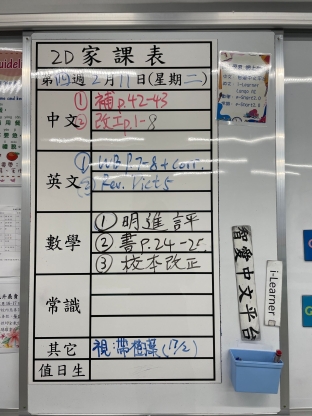 2D 家課表
第四週 2月11日(星期二)
中文
① 補 p.42-43
② 改工p.1-8
英文
① WB P.7-8 + corr.
② Rev. Dict 5
數學
① 明進評
② 書 P.24-25
③ 校本改正
常識
其它
視:帶植藻(17/2)
值日生
智愛中文平台
i-Learner